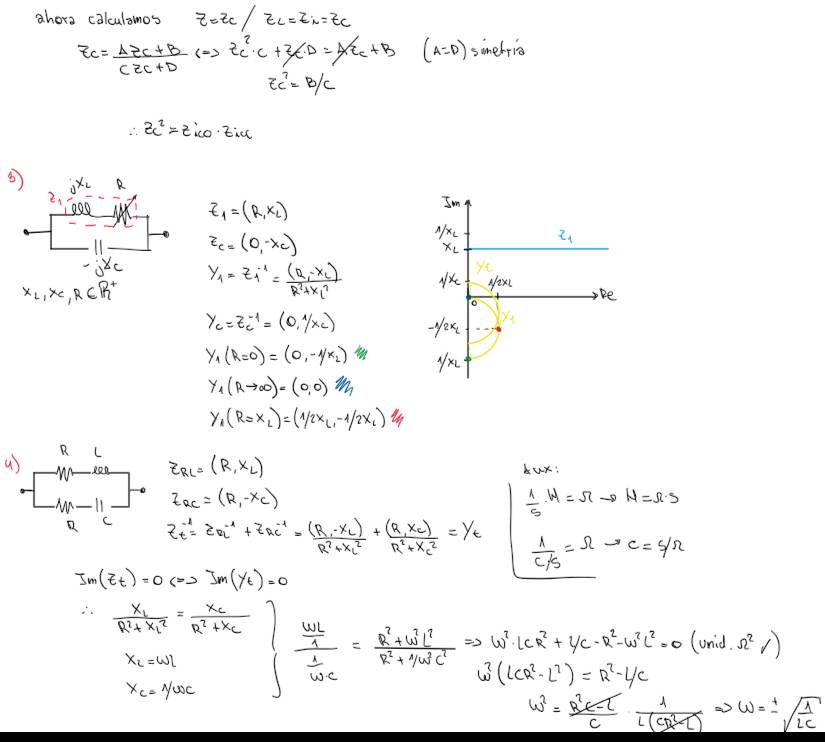 ahora calculamos Z=Zc / ZL=Zin=Zc
Zc = (AZc+B)/(CZc+D) <=> Zc²·C + Zc·D = AZc+B (A=D) simetría
Zc² = B/C
∴ Zc² = Zico · Zicc
3)
jXL R
Z1
-jXc
XL, Xc, R ∈ R⁺
Z1 = (R, XL)
Zc = (0, -Xc)
Y1 = Z1⁻¹ = (R, -XL)/(R²+XL²)
Yc = Zc⁻¹ = (0, 1/Xc)
Y1 (R=0) = (0, -1/XL)
Y1 (R→∞) = (0,0)
Y1 (R=XL) = (1/2XL, -1/2XL)
Im
1/XL
XL
Z1
Yt
1/Xc
1/2XL
Re
0
Y1
-1/2XL
1/XL
4)
R L
R C
ZRL = (R, XL)
ZRC = (R, -Xc)
Zt⁻¹ = ZRL⁻¹ + ZRC⁻¹ = (R, -XL)/(R²+XL²) + (R, Xc)/(R²+Xc²) = Yt
Aux:
1/s · H = Ω → H = Ω·s
1/(C/s) = Ω → C = s/Ω
Im(Zt) = 0 <=> Im(Yt) = 0
∴ XL/(R²+XL²) = Xc/(R²+Xc)
XL = WL
Xc = 1/wc
(WL/1)/(1/(W·C)) = (R²+W²L²)/(R²+1/W²C²) => W²·LCR² + L/C - R² - W²L² = 0 (unid. Ω² ✓)
W²(LCR² - L²) = R² - L/C
W² = (R²C-L)/C · 1/(L(CR²-L)) => W = ± √(1/LC)